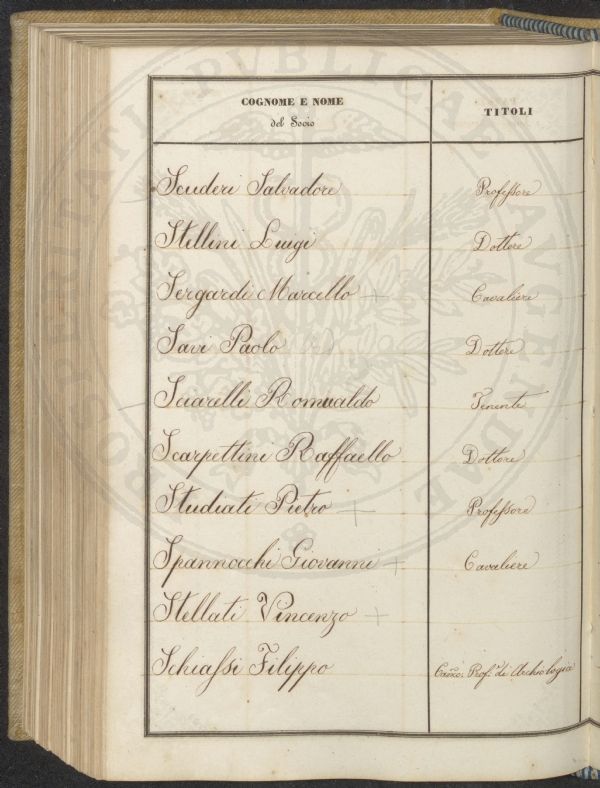 COGNOME E NOME
del Socio
TITOLI
Scuderi Salvadore Professore
Stellini Luigi Dottore
Sergardi Marcello + Cavaliere
Savi Paolo Dottore
Sciarelli Romualdo Tenente
Scarpettini Raffaello Dottore
Studiati Pietro + Professore
Spannocchi Giovanni + Cavaliere
Stellati Vincenzo +
Schiassi Filippo Prof. di Archiologia
PROSPERITATI PUBLICAE AUGENDAE